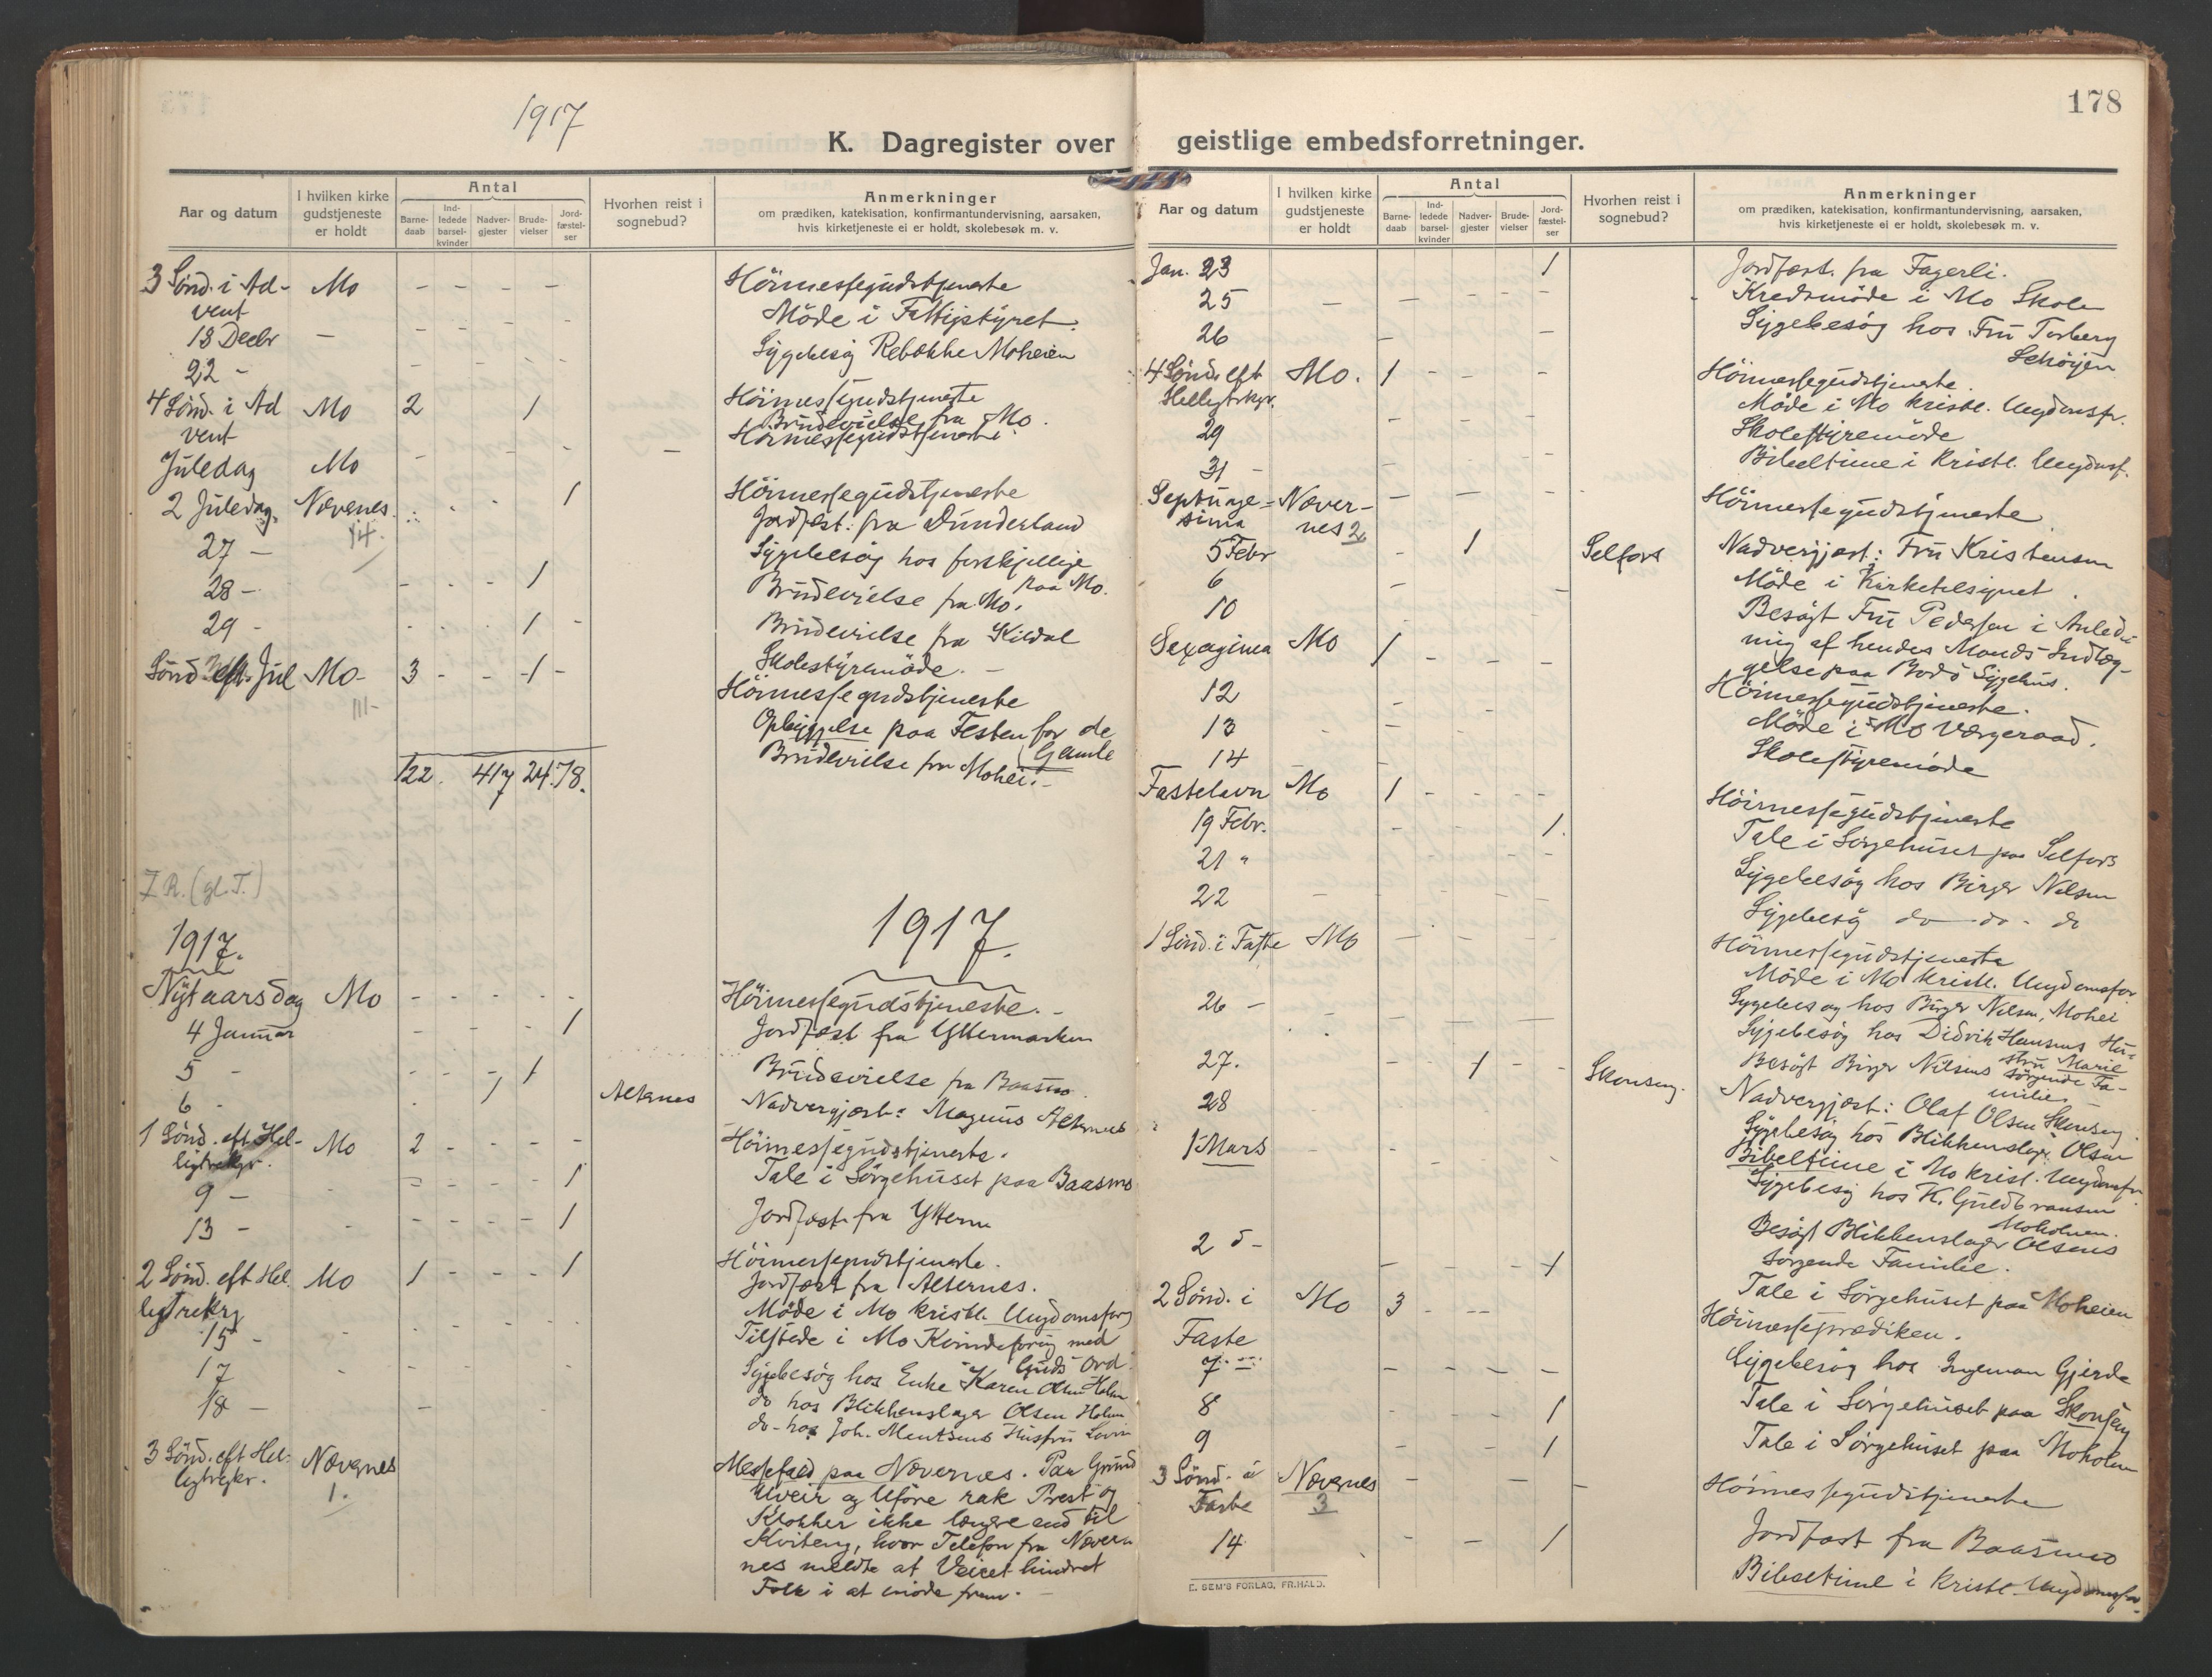 1917
178
K. Dagregister over geistlige embedsforretninger.
Aar og datum
I hvilken kirke gudstjeneste er holdt
Antal
Barne-daab
Ind-ledede barsel-kvinder
Nadver-gjester
Brude-vielser
Jord-fæstel-ser
Hvorhen reist i sognebud?
Anmerkninger
om prædiken, katekisation, konfirmantundervisning, aarsaken,
hvis kirketjeneste ei er holdt, skolebesøk m. v.
3 Sönd. i Ad- Mo - - - - - Höimessegudstjeneste
vent Möde i Fattigstyret.
18 Decbr - Sygebesög Rebekke Moheien
22 -
4 Sönd. i Ad Mo 2 1 Höimessegudstjeneste
vent Brudevielse fra Mo.
Juledag Mo Höimessegudstjeneste
2 Juledag. Nævernes. 1 Höimessegudstjeneste
14. Jordfæst. fra Dunderland
27 - Sygebesög hos forskjellige
paa Mo.
28 - 1 Brudevielse fra Mo.
29 - 1 Brudevielse fra Kildal
Skolestyremöde. -
Sönd. eft. Jul Mo- 3 - - 1 - Höimessegudstjeneste
Opbyggelse paa Festen for de
Gamle
Brudevielse fra Mohei. -
122. 417 24. 78.
7 R. (gl. T.)
1917. 1917.
Nytaarsdag Mo - - - - - Höimessegudstjeneste. -
4 Januar 1 Jordfæst fra Yttermarken
5 - 1 Brudevielse fra Baasmo
6 - 1 Alternes Nadvergjæst: Magnus Alternes
1 Sönd. eft Hel- Mo 2 - - - - Höimessegudstjeneste.
ligtrekgr.
9 - 1 Tale i Sörgehuset paa Baasmo
13 - 1 Jordfæst. fra Yttern
2 Sönd. eft Hel. Mo 1 - - - 1 Höimessegudstjeneste.
ligtrekg Jordfæst fra Alternes.
15 - Möde i Mo kristl. Ungdomsforg
17 Tilstede i Mo Kvindeforg med
Guds Ord.
18 - Sygebesög hos Enke Karen Olsen Holm
do hos Blikkenslager Olsen Holm
do - hos Joh. Mentsens Hustru
3 Sönd. eft Hel- Nævernes Messefald paa Nævernes. Paa Grund
ligtrekgr. 1. Uveir og Uföre rak Prest og
Klokker ikke længere end til
Kviteng, hvor Telefon fra Nævern
nes meldte at Veiret hindret
Folk i at möde frem. -
Aar og datum
I hvilken kirke gudstjeneste er holdt
Antal
Barne-daab
Ind-ledede barsel-kvinder
Nadver-gjester
Brude-vielser
Jord-fæstel-ser
Hvorhen reist i sognebud?
Anmerkninger
om prædiken, katekisation, konfirmantundervisning, aarsaken,
hvis kirketjeneste ei er holdt, skolebesøk m. v.
Jan. 23 1 Jordfæst. fra Fagerli.
25 - Kredsmöde i Mo Skole
26 Sygebesög hos Fru Torberg
Schöyen
4 Sönd. eft Mo. 1 - - Höimessegudstjeneste.
Helligtrkgr. Möde i Mo kristl. Ungdomsfr.
29 Skolestyremöde
31 - Bibeltime i Kristl. Ungdmsf.
Septuage- Næver- Höimessegudstjeneste
sima nes 2
5 Febr 1 Selfors Nadvergjæst: Fru Kristensen
6 Möde i Kirketilsynet.
10 Besögt Fru Pedersen i Anled-
ning af hendes Mands Indlæg-
gelse paa Bodö Sygehus.
Sexagima Mo 1 - - - Höimessegudstjeneste.
12 Möde i Mo Værgeraad.
13 Skolestyremöde
14
Fastelavn Mo 1 - - - - Höimessegudstjeneste
19 Febr. 1. Tale i Sörgehuset paa Selfors
21 " Sygebesög hos Birger Nilsen
22 Sygebesög do - do - do
1 Sönd. i Faste Mo Höimessegudstjeneste
Möde i Mo kristl. Ungdomsfor
26 - Sygebesög hos Birger Nilsen, Mohei
Sygebesög hos Didrik Hansens Hu-
stru Marie
Besögt Birger Nilsens sörgende Fa-
milie
27. 1 Skonseng. Nadvergjæst: Olaf Olsen Skonseng.
28 Sygebesög hos Blikkenslager Olsen
1 Mars Bibeltime i Mo krist. Ungdmsfr
Sygebesög hos K. Guldbransen
Moholmen.
2 d - Besögt Blikkenslager Olsens
sörgende Familie.
1 Tale i Sörgehuset paa Moheien
2 Sönd. i Mo 3 - - - Höimesseprædiken.
Faste
7 - Sygebesög hos Ingeman Gjerde
8 1 Tale i Sörgehuset paa Skonseng
9 1 Tale i Sörgehuset paa Moholm
3 Sönd. i Nævernes Höimessegudstjeneste
Faste 3
14 1 Jordfæst fra Baasmo
Bibeltime i kristl. Ungdomsfor.
E. SEM'S FORLAG, FR.HALD.